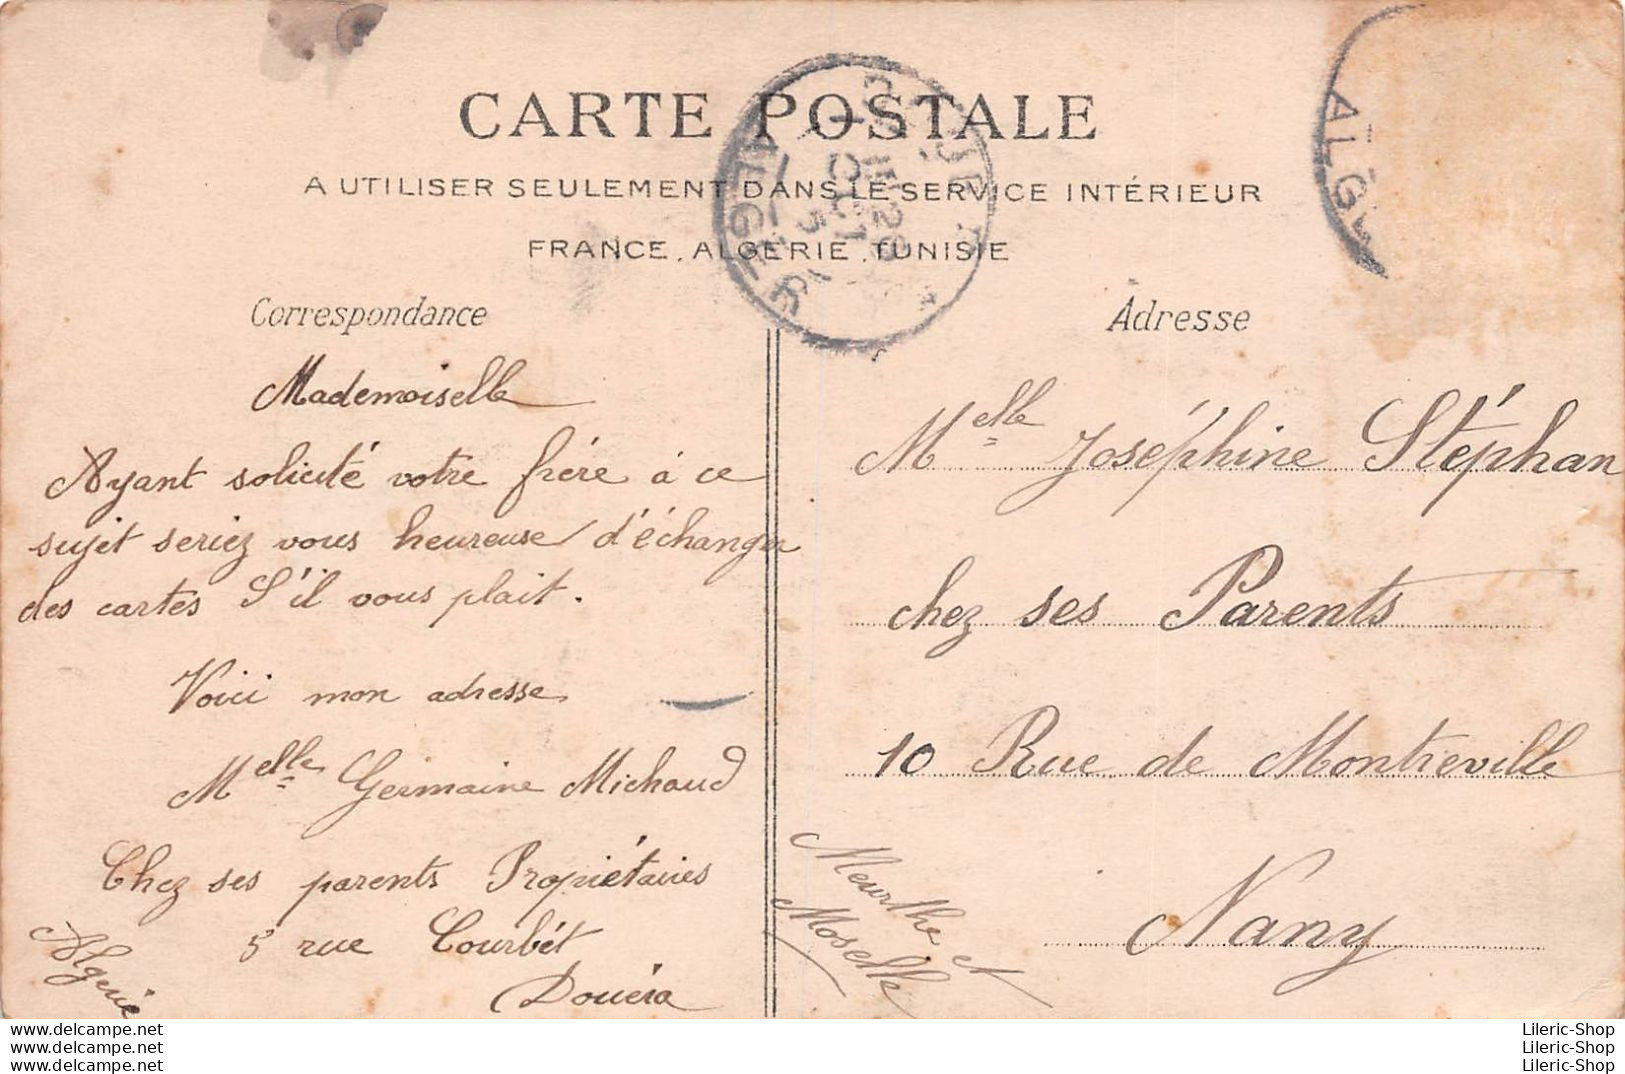 CARTE POSTALE
A UTILISER SEULEMENT DANS LE SERVICE INTÉRIEUR
FRANCE, ALGÉRIE, TUNISIE
ALGER
ALGE
Correspondance
Mademoiselle
Ayant solicité votre frère à ce
sujet seriez vous heureuse d'échanger
des cartes S'il vous plait.
Voici mon adresse
Melle Germaine Michaud
Chez ses parents Propriétaires
5 rue Courbét
Douéra
Algerie
Adresse
Melle Joséphine Stéphan
chez ses Parents
10 Rue de Montreville
Nany
Meurthe et
Moselle
Lileric-shop.delcampe.net
Lileric-shop.delcampe.net
Lileric-shop.delcampe.net
Lileric-Shop
Lileric-Shop
Lileric-Shop